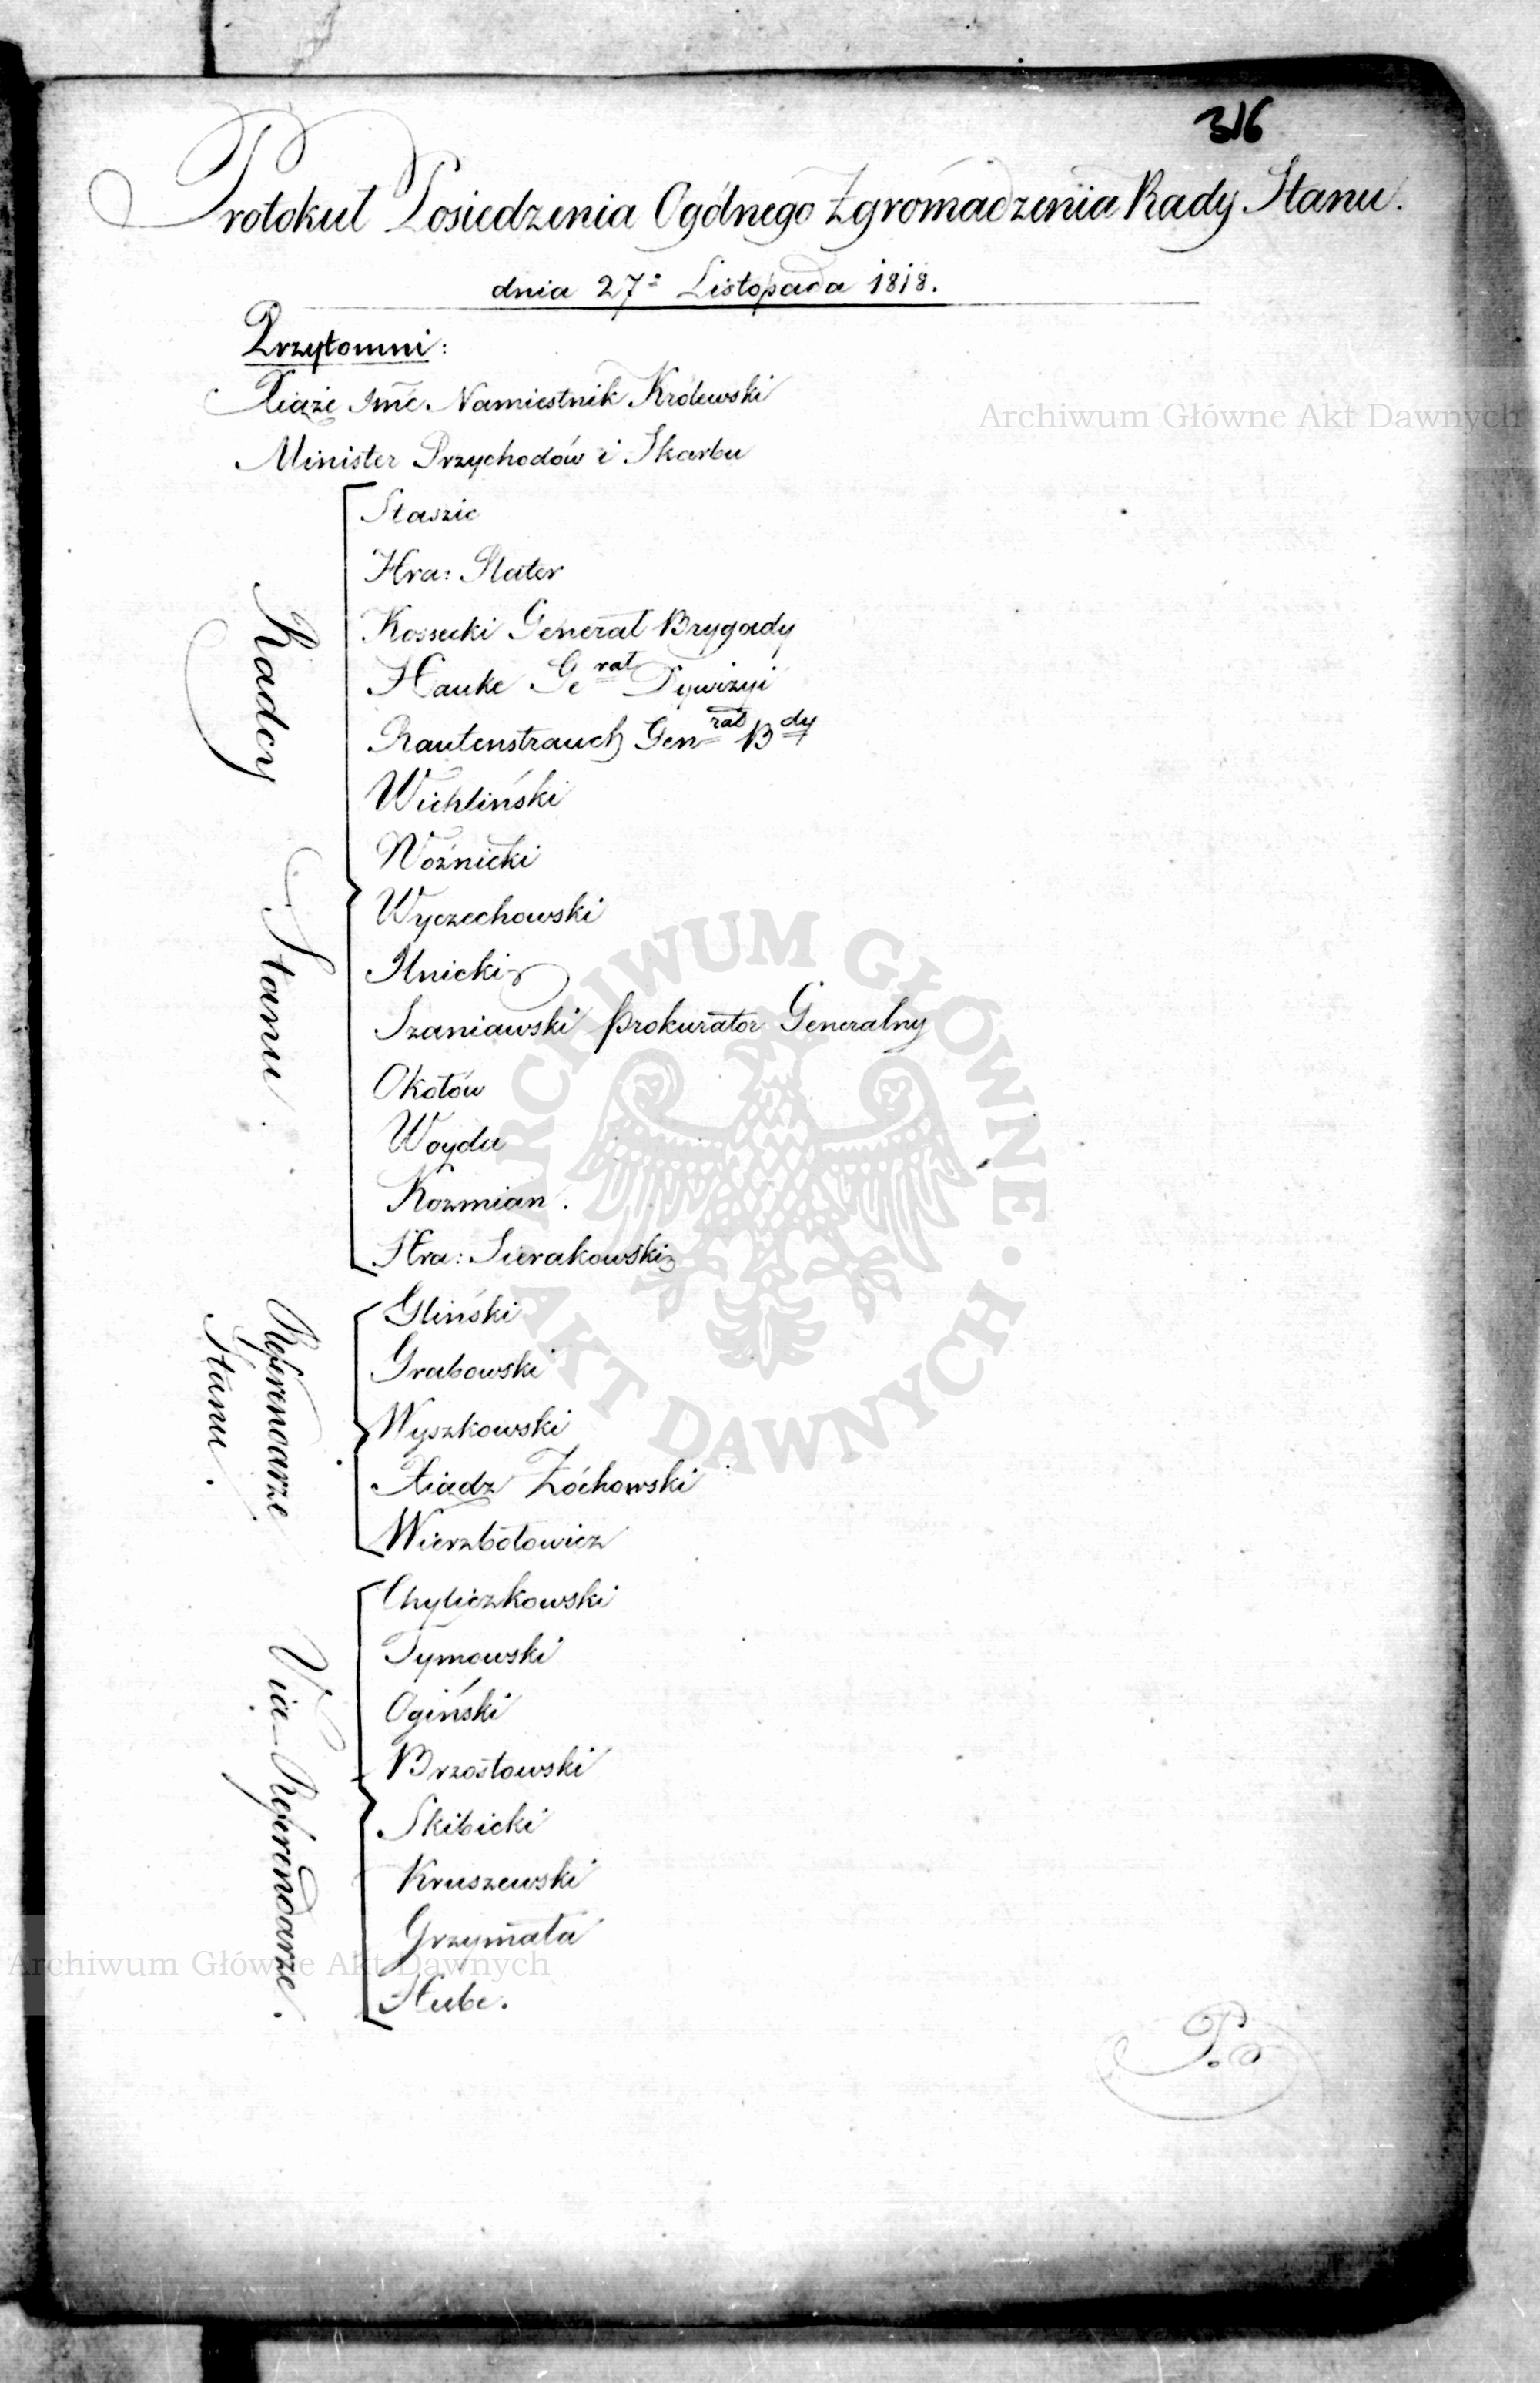 316
Protokuł Posiedzenia Ogólnego Zgromadzenia Rady Stanu.
dnia 27º Listopada 1818.
Przytomni:
Xiąże Jmć Namiestnik Królewski
Archiwum Główne Akt Dawnych
Minister Przychodów i Skarbu
Radcy Stanu.
Staszic
Hra: Plater
Kossecki Generał Brygady
Hauke Ge rał Dywizyi
Rautenstrauch Gen rał B dy
Wichliński
Woźnicki
Wyczechowski
Ilnicki
Szaniawski Prokurator Generalny
Okołów
Woyda
Kozmian.
Hra: Sierakowski
Referendarze Stanu.
Gliński
Grabowski
Wyszkowski
Xiądz Żóchowski
Wierzbołowicz
Vice-Referendarze.
Chyliczkowski
Tymowski
Ogiński
Brzostowski
Skibicki
Kruszewski
Grzymała
Hube.
Archiwum Główne Akt Dawnych
ARCHIWUM GŁÓWNE AKT DAWNYCH